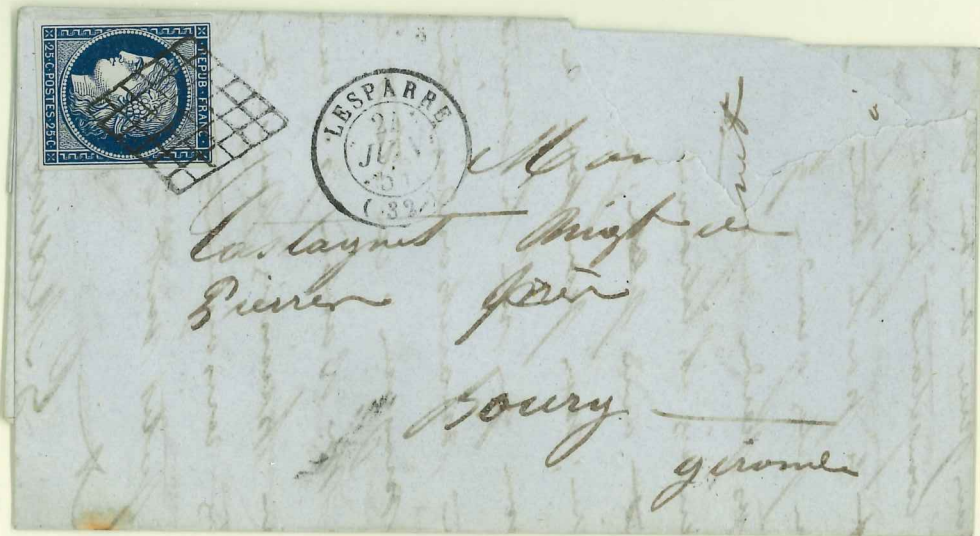 25·C POSTES·25·C
REPUB·FRANC
LESPARRE
24
JUIN
51
(32)
Mon
Castagnet Migt de
Pierren
Bourg
gironde